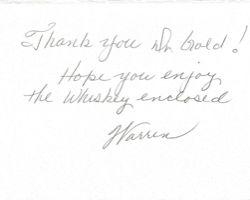 Thank you Dr. Gold!
Hope you enjoy
the whiskey enclosed
Warren